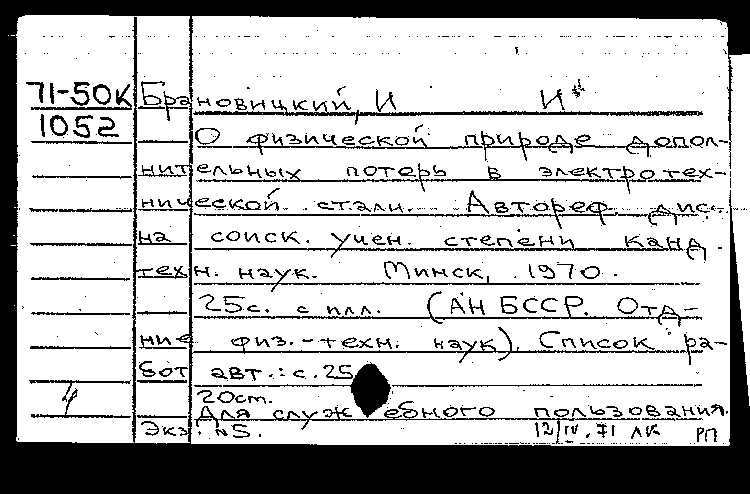 71-50К Брановицкий, И И*
1052 О физической природе допол-
нительных потерь в электротех-
нической стали. Автореф. дис.
на соиск. учен. степени канд.
техн. наук. Минск, 1970.
25с. с илл. (АН БССР. Отд-
ние физ.-техн. наук). Список ра-
бот авт.: с.25
4 20ст.
Для служебного пользования.
Экз. №5. 12/IV.71 ЛК РП